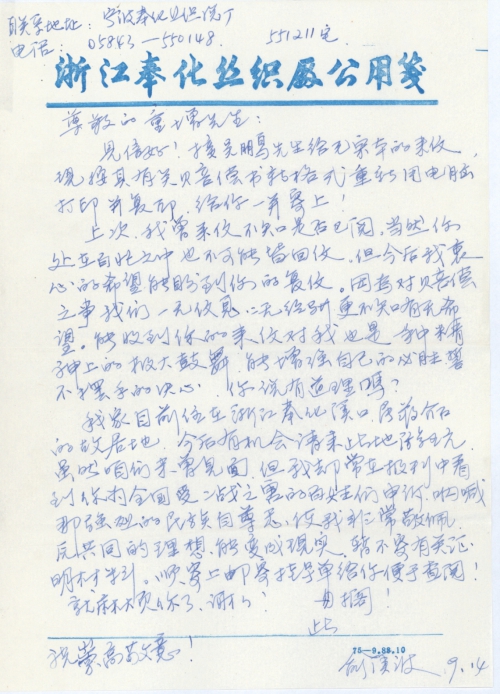 联系地址：宁波奉化丝织厂
电话：05843—550148 551211宅
浙江奉化丝织厂公用笺
尊敬的童增先生：
见信好！接吴鹏先生给无案卒的来信
现按其有关赔偿书转格式重新用电脑
打印并复印，给你一并寄上！
上次，我曾来信不知是否已阅，当然你
处在百忙之中也不可能诸回信，但今后我衷
心的希望能盼到你的复信。因为对赔偿
之事我们一无信息，二无经验更不知有无希
望。能收到你的来信对我也是一种精
神上的极大鼓舞，能增强自己的必胜誓
不罢手的决心，你说有道理吗？
我家目前住在浙江奉化溪口，蒋介石
的故居地，今后有机会请来此地
虽然咱们未曾见面，但我却常在报刊中看
到你为全国受二战之害的百姓们申诉，呐喊
那强烈的民族自尊心，使我非常敬佩，
愿共同的理想，能变成现实，
明材料。顺寄上邮寄挂号单给你便于查阅！
就麻烦你了，谢谢！
此
祝 崇高敬意！
75—9.88.10
9.14